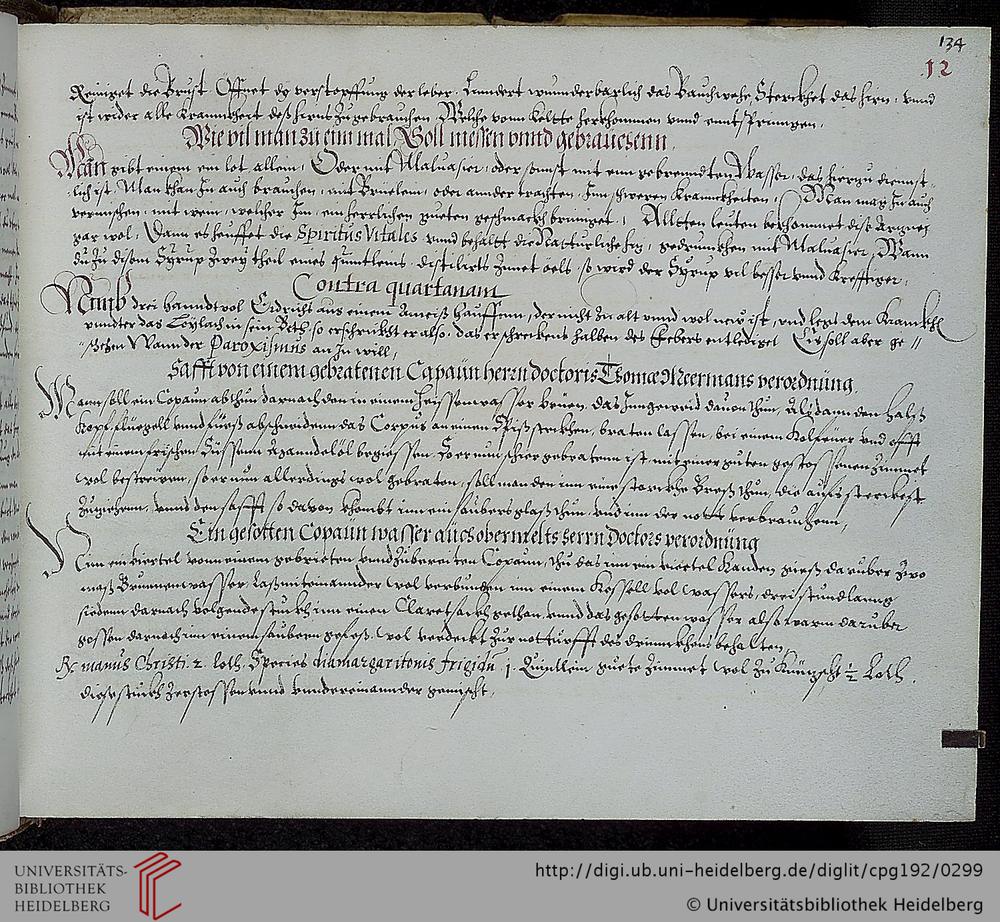 134
12
Reiniget die Brust Offnet die verstopffung der leber. Lindert wunderbarlich das Bauchwehe, Sterckhet das hirn, vnnd
ist wider alle Kranncheit deß hirns Zugebrauchen, Welche vom Keltte herkhommen vnnd enntspringen.
Wie vil man zu eim mal Soll niessen vnnd gebrauchenn.
Man gibt einem ein lot allein, Oder mit Maluasier, oder sonnst mit eim gebrenndten Wasser, das hierzu diennst-
lich ist. Man khan In auch brauchen, mit Brüelein, oder annder trachten, Inn schweren Kranckheiten, Man mag In auch
vermischen, mit wein, welcher Im, ein herrlichen gueten geschmackh bringet, Alltten leüten bekhommet dise Arznei
gar wol, Dann es heuffet die Spiritus Vitales vnnd behaltt die Natturliche hiz, gedrunckhen mit Maluasier, Wann
du Zu disem Syrup Zwey theil eines quintleins, distilirts Zimet öels, so wird der Syrup vil besser vnnd Krefftiger.
Contra quartanam
Nimb drei hanndtvol Erdrichs aus einem Ameiß hauffenn, der nicht Zu alt vnnd wol new ist, vnd legs dem Kranckh
vnndter das Leylach in sein Beth, so erschrickht er also, das er schreckens halben des Fiebers entlediget Es soll aber ge //
schehen Wann der Paroxismus an In will,
Safft von einem gebratenen Capaün herrn doctoris Thomæ Meermans verordnüng
Mann soll ein Copaün abthun darnach den in einem heissen wasser brüen, das Inngeweid dauon thun, Alsdann den halß
kopf, flüegell vnnd füeß abschneidenn das Corpus an einen Spiß steckhen, braten lassen, bei einem Kolfeüer vnd offt
mit einem frischen Süssenn Manndelöl begiessen, So er nun schier gebratenn ist, mit einer guten gestossenen Zimmet
wol bestreiwen, so er nun allerdings wol gebraten, soll man den inn eine starckhe Preß thun, die aufs sterckhest
Zuziehenn, vnnd den safft so dauon khombt inn ein saubers glaß thun, vnd inn der nott verbrauchenn,
Ein gesotten Copaün wasser aüch obermelts herrn doctors verordnüng
Nim ein viertel vonn einem gebrieten vnnd Zubereiten Copaun, thu das inn ein viertel Kanden gieß daruber Zwo
maß Brunnenwasser, laß miteinannder wol verbunden inn einem Kessell vol wassers, drei stundlanng
siedenn darnach volgende stuckh inn einen Claretsackh gethan, vnnd das gesotten wasser also warm daruber
gossen darnach inn einem saubern gefeß, wol verdeckt Zur notturfft des drinnckhens behalten
Rc manus Christi 2. loth, Species diamargaritonis frigidi 1. Quintlein guete Zimmet wol Zu Knüzscht ½ Loth.
diese stuckh Zerstossen vnnd vndereinannder gemischt.
UNIVERSITÄTS-
BIBLIOTHEK
HEIDELBERG
http://digi.ub.uni-heidelberg.de/diglit/cpg192/0299
© Universitätsbibliothek Heidelberg